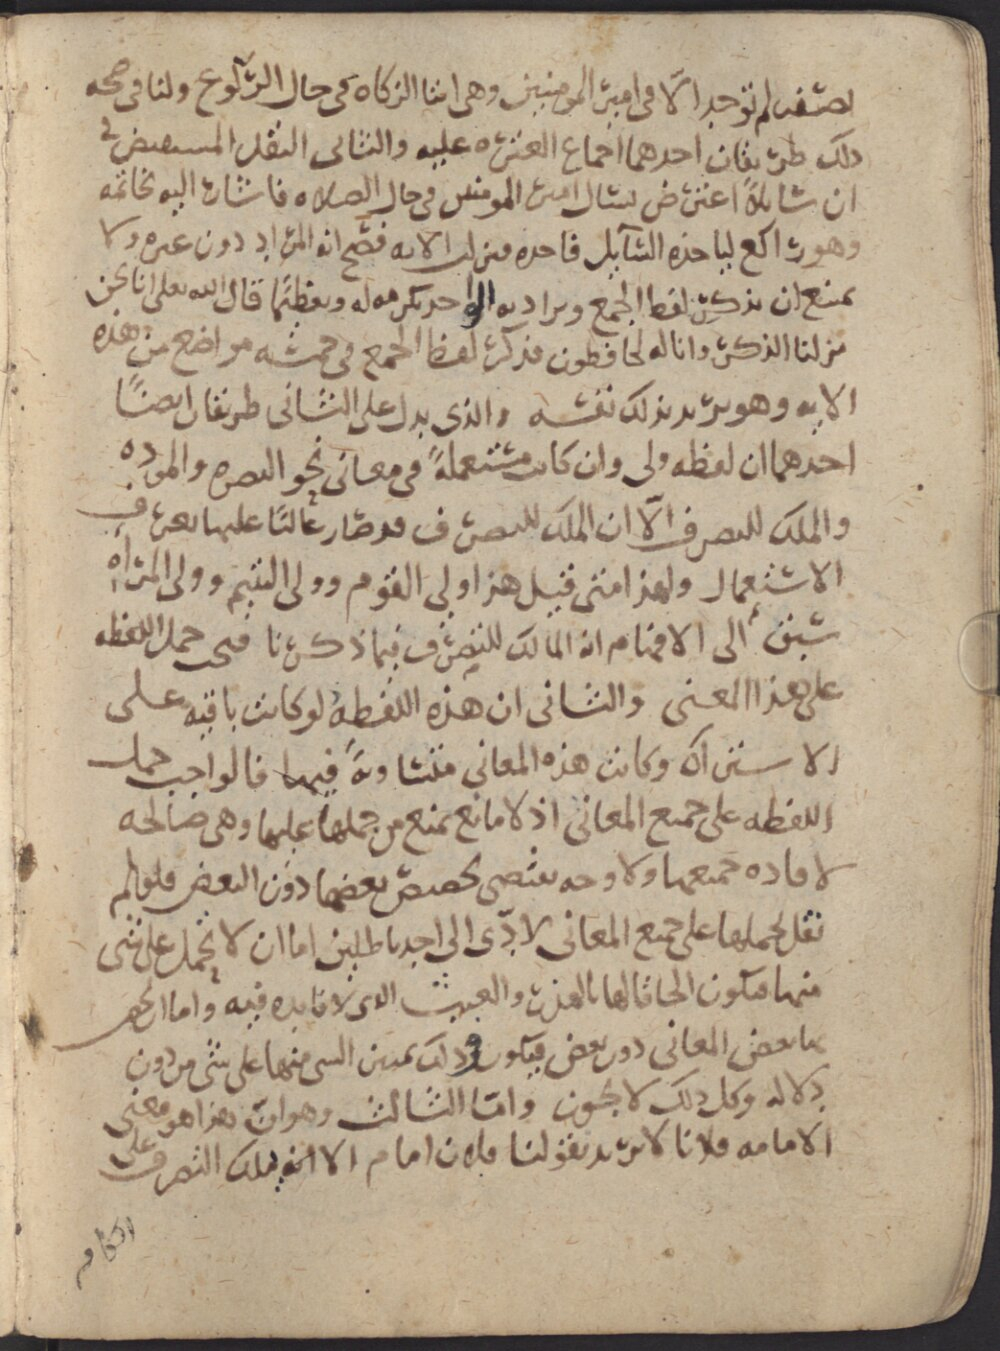 بصفه لم توجد الا في امير المومنين وهي ايتا الزكاه في حال الركوع ولنا في صحه
ذلك طريقان احدهما اجماع العتره عليه والثاني النقل المستفيض في
ان سايلا اعترض يسال امير المومنين في حال الصلاه فاشار اليه بخاتمه
وهو راكع لياخذه السايل فاخذه فنزلت الايه فصح انه المراد دون غيره ولا
يمنع ان يذكر لفظ الجمع ويراد به الواحد تكرمه له وتعظيما قال الله تعلى انا نحن
نزلنا الذكر وانا له لحافظون فذكر لفظ الجمع في خمسه مواضع من هذه
الايه وهو يريد بذلك نفسه والذي يدل على الثاني طريقان ايضا
احدهما ان لفظه ولي وان كانت مستعملة في معاني نحو النصره والموده
والملك للتصرف الا ان الملك للتصرف قد صار غالبا عليها بعرف
الاستعمال ولهذا متى قيل هذا ولي القوم وولي اليتيم وولي المراه
سبق الى الافهام انه المالك للتصرف فيما ذكرنا فيجب حمل اللفظه
على هذا المعنى والثاني ان هذه اللفظه لو كانت باقيه على
الاشتراك وكانت هذه المعاني متساوية فيها فالواجب حمل
اللفظه على جميع المعاني اذ لا مانع يمنع من حملها عليها وهي صالحه
لافاده جميعها ولا وجه يقتضي تخصيص بعضها دون البعض فلو لم
نقل بحملها على جميع المعاني لادى الى احد باطلين اما ان لا تحمل على شي
منها فيكون الحاقا لها بالهذر والعبث الذي لا فايده فيه واما ان يخص
بها بعض المعاني دون بعض فيكون ذلك تعيين الشي منها على شي من دون
دلاله وكل ذلك لا يجوز واما الثالث وهو ان هذا هو معنى
الامامه فلانا لا نريد بقولنا فلان امام الا انه يملك التصرف على
الكافه